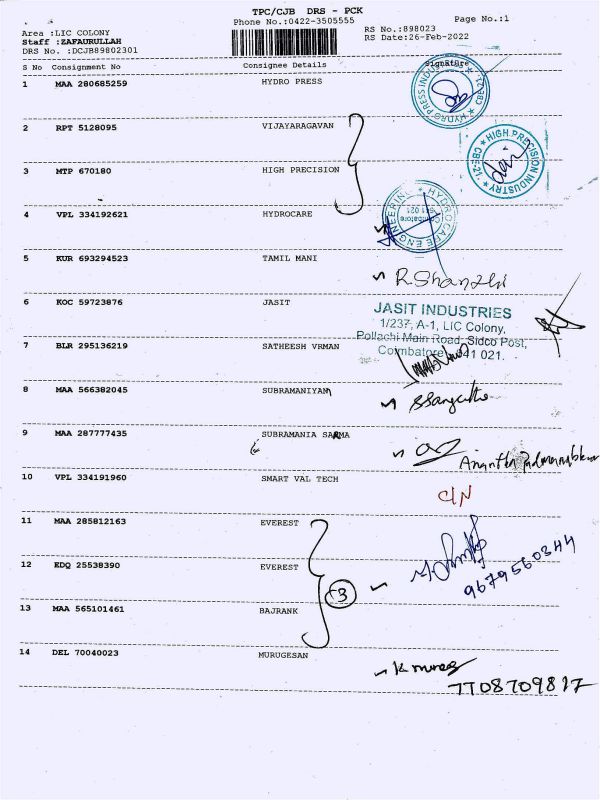 TPC/CJB DRS - PCK
Phone No.:0422-3505555
Page No.:1
Area :LIC COLONY
RS No.:898023
Staff :ZAFAURULLAH
RS Date:26-Feb-2022
DRS No. :DCJB89802301
S No Consignment No Consignee Details Signature
1 MAA 280685259 HYDRO PRESS
HYDRO PRESS INDUS CBE-21
2 RPT 5128095 VIJAYARAGAVAN
HIGH PRECISION INDUSTRY CBE-21
3 MTP 670180 HIGH PRECISION
4 VPL 334192621 HYDROCARE
HYDROCARE ENGINEERING
5 KUR 693294523 TAMIL MANI
R Shanthi
6 KOC 59723876 JASIT
JASIT INDUSTRIES
1/237, A-1, LIC Colony,
Pollachi Main Road, Sidco Post,
Coimbatore 641 021.
7 BLR 295136219 SATHEESH VRMAN
8 MAA 566382045 SUBRAMANIYAN
9 MAA 287777435 SUBRAMANIA SARMA
10 VPL 334191960 SMART VAL TECH
C/N
11 MAA 285812163 EVEREST
12 EDQ 25538390 EVEREST
3
9679560344
13 MAA 565101461 BAJRANK
14 DEL 70040023 MURUGESAN
7708709817